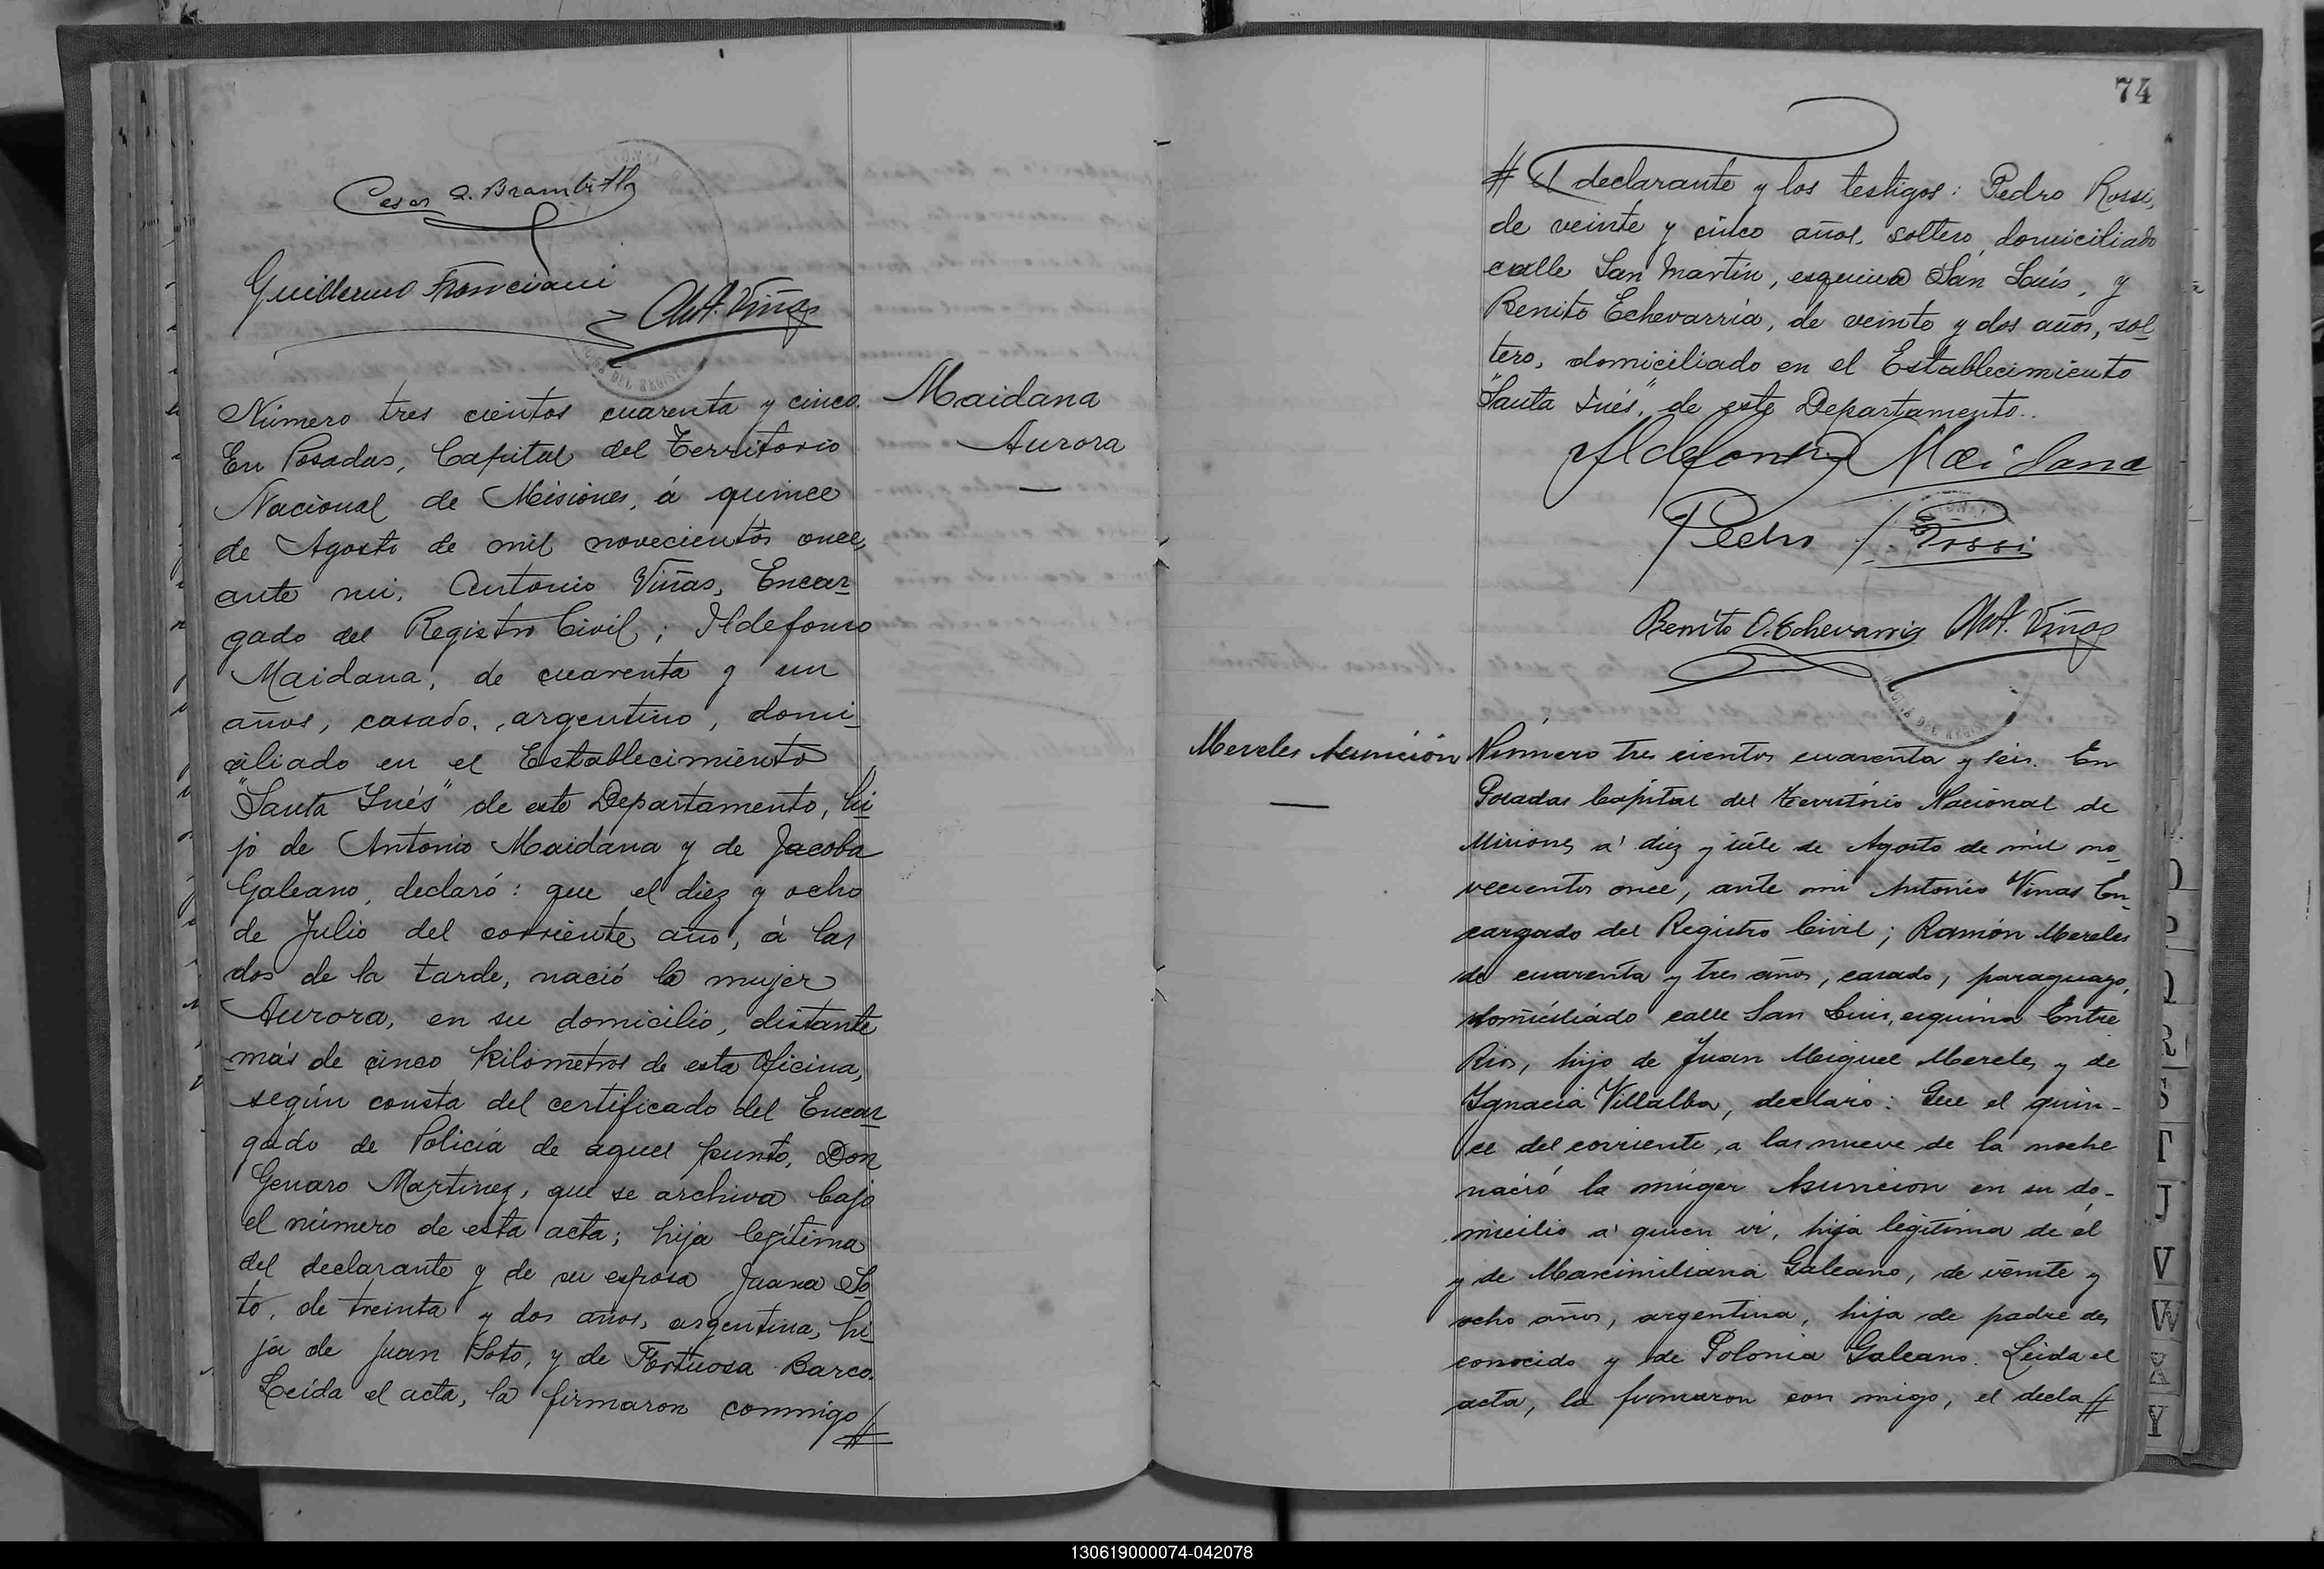 Cesar Q. Brambilla
Guillermo Franciani
Ant. Viñas
Número tres cientos cuarenta y cinco.
En Posadas, Capital del Territorio
Nacional de Misiones, á quince
de Agosto de mil novecientos once,
ante mi, Antonio Viñas, Encar-
gado del Registro Civil; Ildefonso
Maidana, de cuarenta y un
años, casado, argentino, domi-
ciliado en el Establecimiento
"Santa Inés" de este Departamento, hi-
jo de Antonio Maidana y de Jacoba
Galeano, declaró: que el diez y ocho
de Julio del corriente año, á las
dos de la tarde, nació la mujer
Aurora, en su domicilio, distante
más de cinco kilometros de esta Oficina,
según consta del certificado del Encar-
gado de Policia de aquel punto, Don
Genaro Martinez, que se archiva bajo
el número de esta acta; hija legítima
del declarante y de su esposa Juana So-
to, de treinta y dos años, argentina, hi-
ja de Juan Soto, y de Fortuosa Barco.
Leída el acta, la firmaron conmigo #
Maidana
Aurora
—
74
# El declarante y los testigos: Pedro Rossi,
de veinte y cinco años, soltero, domiciliado
calle San Martín, esquina San Luis, y
Benito Echevarría, de veinte y dos años, sol-
tero, domiciliado en el Establecimiento
"Santa Inés", de este Departamento.
Ildefonso Maidana
Pedro Rossi
Benito O. Echevarria Ant. Viñas
Mereles Asunción
—
Número tres cientos cuarenta y seis. En
Posadas Capital del Territorio Nacional de
Misiones a' diez y siete de Agosto de mil no-
vecientos once, ante mi Antonio Vinas En-
cargado del Registro Civil; Ramón Mereles
de cuarenta y tres años, casado, paraguayo,
domiciliado calle San Luis, esquina Entre
Rios, hijo de Juan Miguel Mereles y de
Ygnacia Villalba, declaró: Que el quin-
ce del corriente, a las nueve de la noche
nació la múger Asuncion en su do-
micilio a' quien vi, hija legitima de él
y de Marcimiliana Galeano, de veinte y
ocho años, argentina, hija de padre des
conocido y de Polonia Galeano. Leida el
acta, la firmaron con migo, el decla #
O
P
Q
R
S
T
J
V
W
X
Y
130619000074-042078